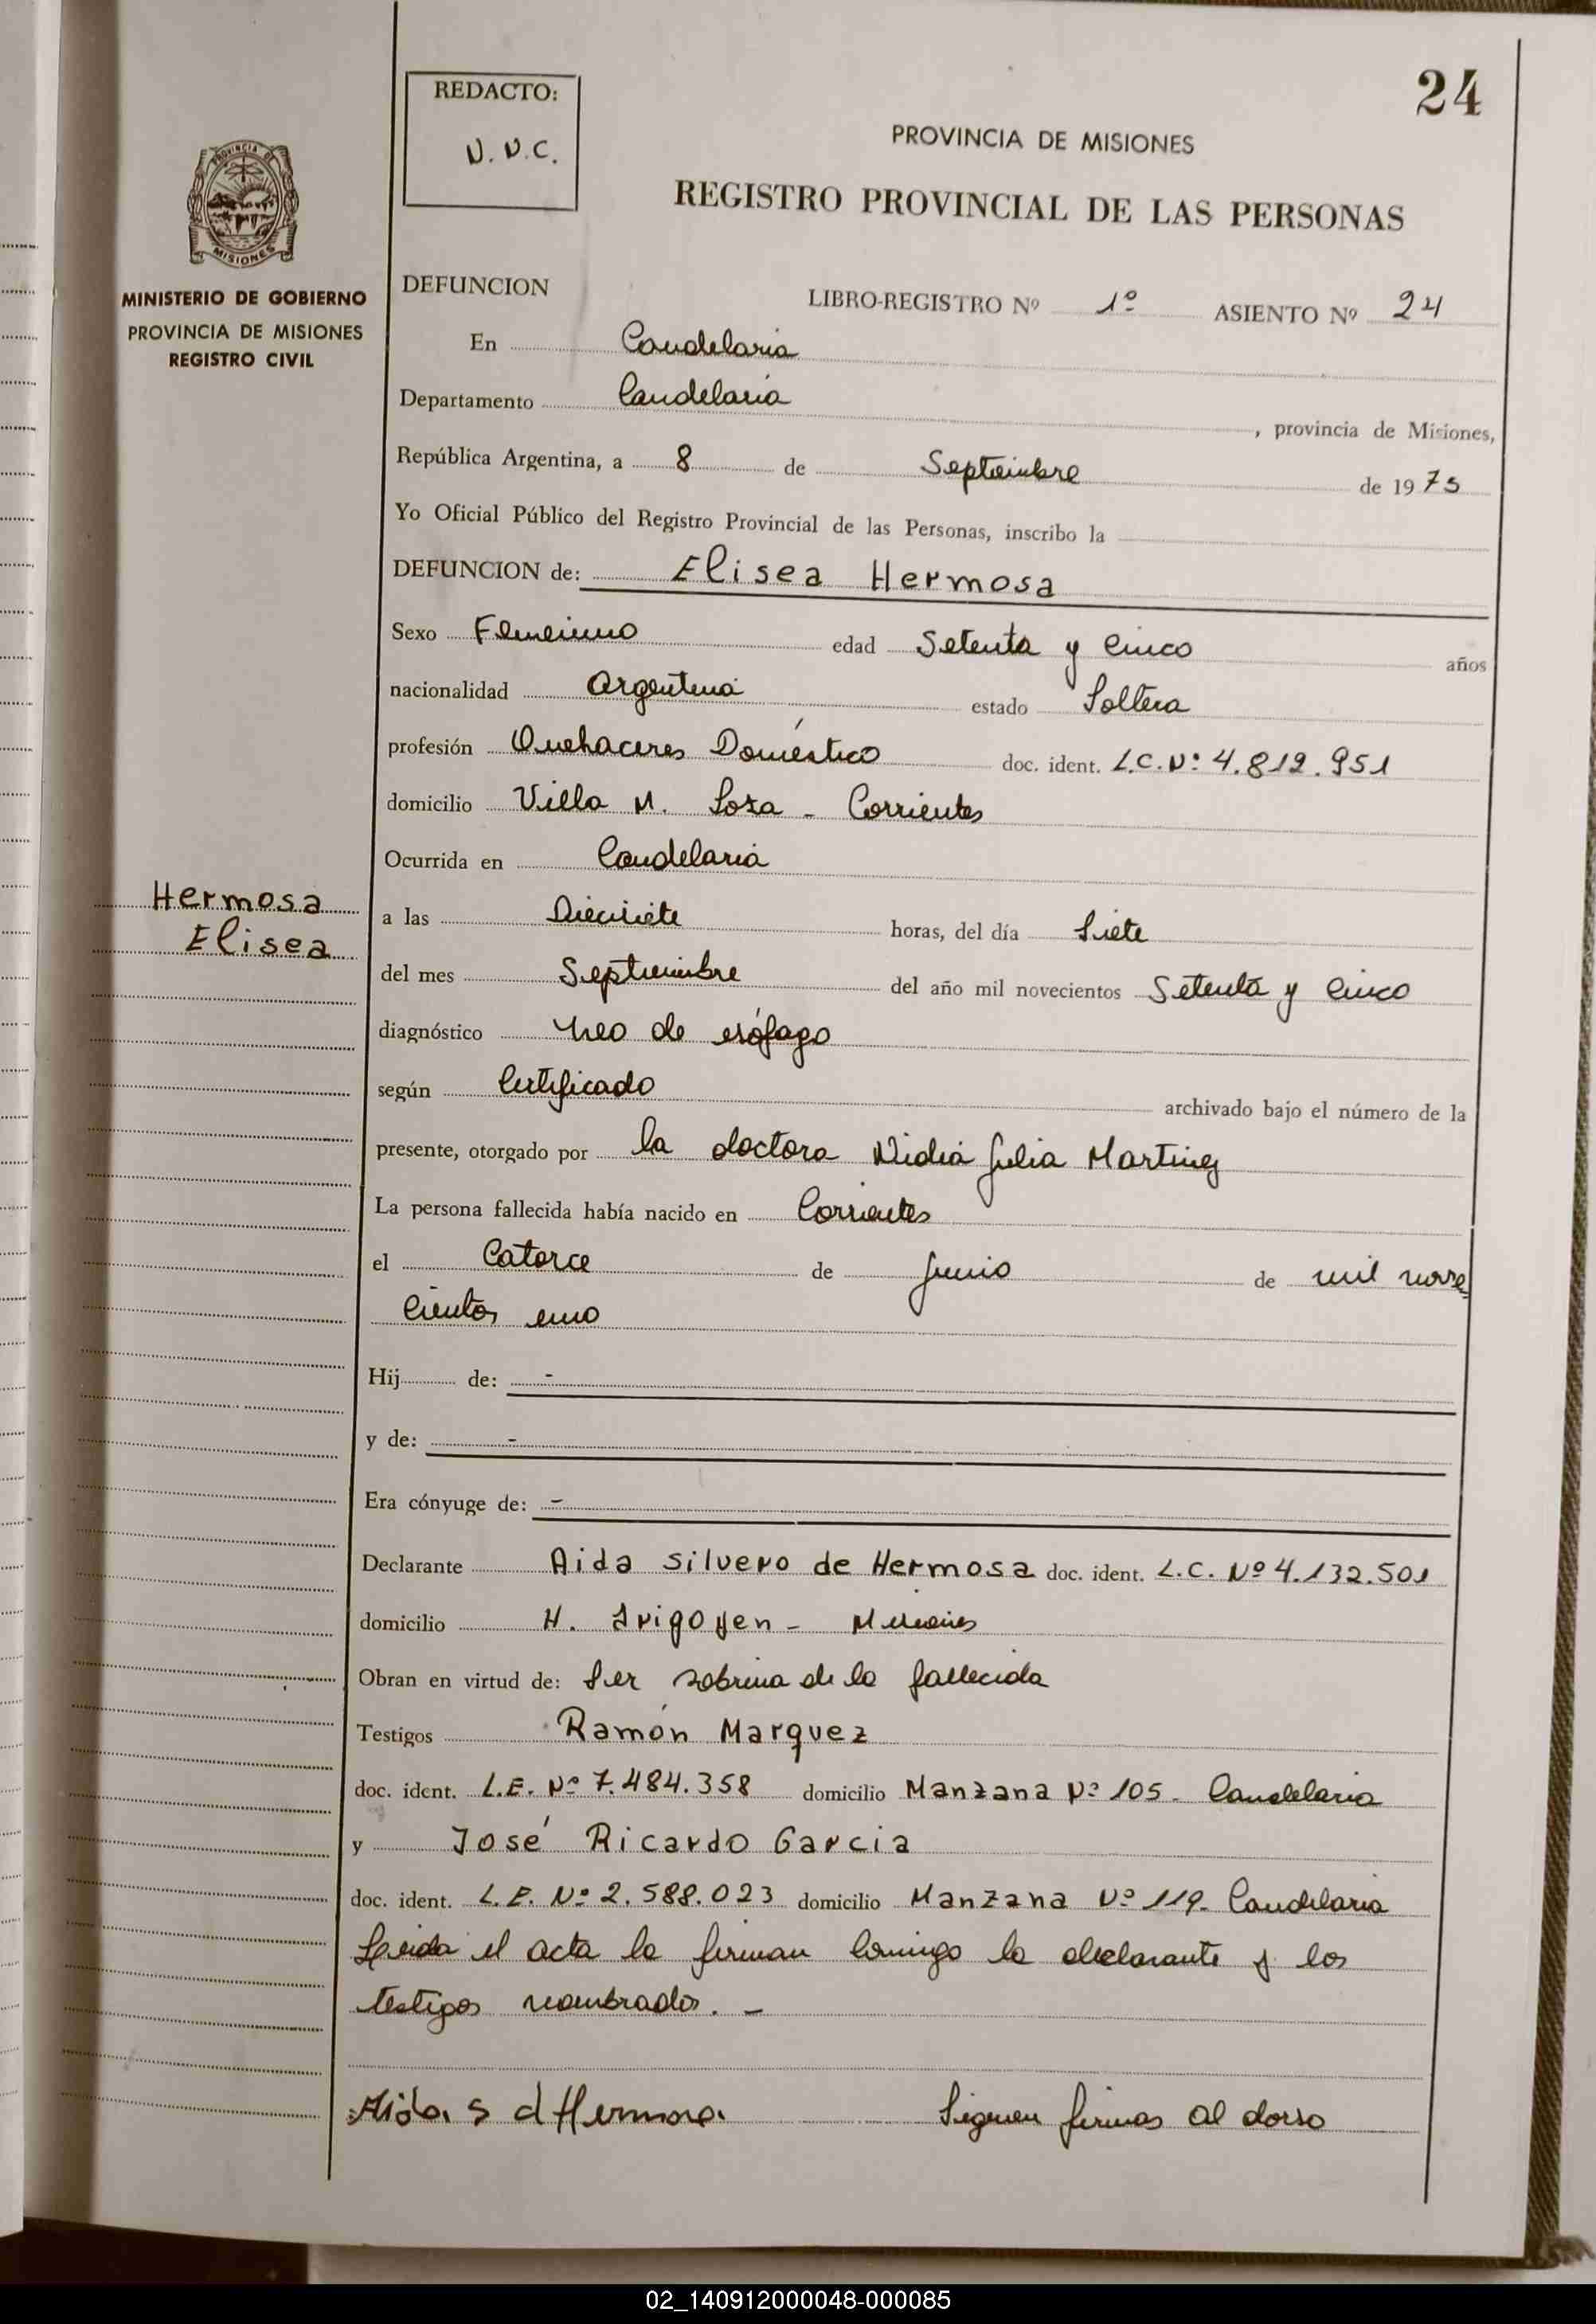 24
REDACTO:
N.N.C.
PROVINCIA DE MISIONES
REGISTRO PROVINCIAL DE LAS PERSONAS
PROVINCIA DE
MISIONES
MINISTERIO DE GOBIERNO
PROVINCIA DE MISIONES
REGISTRO CIVIL
DEFUNCION LIBRO-REGISTRO Nº 1º ASIENTO Nº 24
En Candelaria
Departamento Candelaria, provincia de Misiones,
República Argentina, a 8 de Septiembre de 1975
Yo Oficial Público del Registro Provincial de las Personas, inscribo la
DEFUNCION de: Elisea Hermosa
Sexo Femenino edad Setenta y Cinco años
nacionalidad Argentina estado Soltera
profesión Quehaceres Doméstico doc. ident. L.C.Nº 4.812.951
domicilio Villa M. Loza - Corrientes
Ocurrida en Candelaria
Hermosa
Elisea
a las Diecisiete horas, del día Siete
del mes Septiembre del año mil novecientos Setenta y Cinco
diagnóstico neo de esófago
según Certificado archivado bajo el número de la
presente, otorgado por la doctora Nidia Julia Martinez
La persona fallecida había nacido en Corrientes
el Catorce de Junio de mil nove
cientos uno
Hij de: -
y de: -
Era cónyuge de: -
Declarante Aida Silvero de Hermosa doc. ident. L.C. Nº 4.132.501
domicilio H. Irigoyen - Misiones
Obran en virtud de: Ser sobrina de la fallecida
Testigos Ramón Marquez
doc. ident. L.E. Nº 7.484.358 domicilio Manzana Nº 105 - Candelaria
y José Ricardo Garcia
doc. ident. L.E. Nº 2.588.023 domicilio Manzana Nº 119 - Candelaria
Leida el acta la firman conmigo la declarante y los
testigos nombrados. -
Aida S d Hermosa Siguen firmas al dorso
02_140912000048-000085